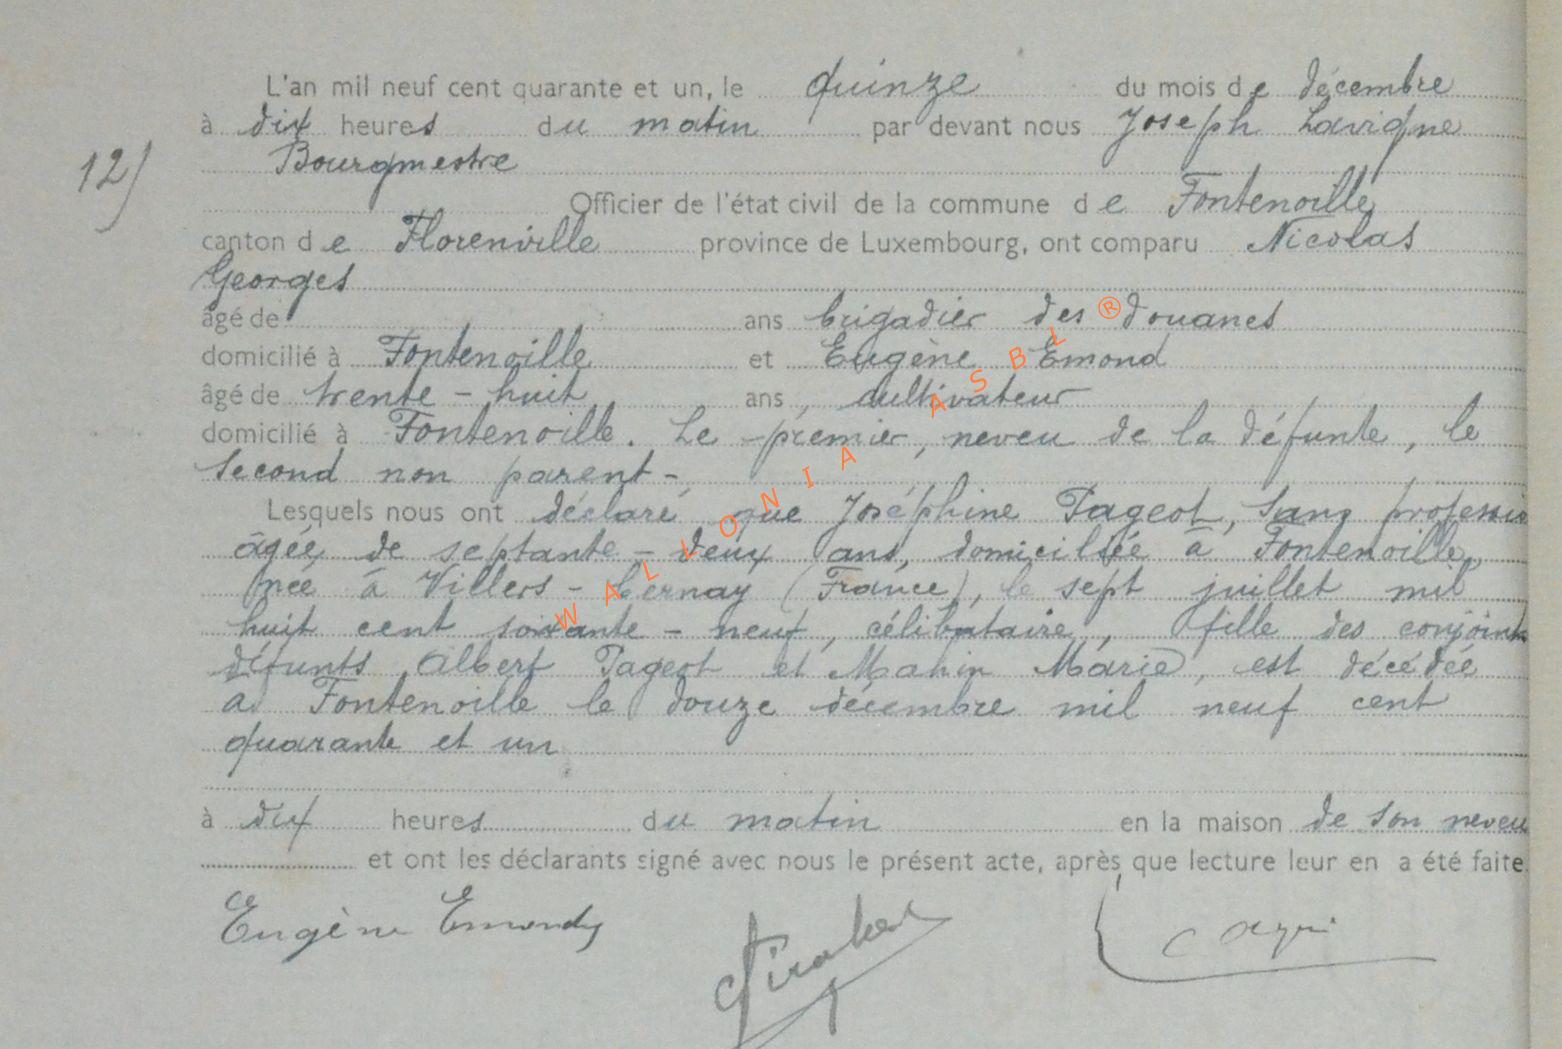 L'an mil neuf cent quarante et un, le quinze du mois de décembre
à dix heures du matin par devant nous Joseph Lavigne
12) Bourgmestre
Officier de l'état civil de la commune de Fontenoille
canton de Florenville province de Luxembourg, ont comparu Nicolas
Georges
âgé de ans brigadier des douanes
domicilié à Fontenoille et Eugène Emond
âgé de trente - huit ans, cultivateur
domicilié à Fontenoille. Le premier, neveu de la défunte, le
second non parent -
Lesquels nous ont déclaré que Joséphine Pageot, sans professio
âgée de septante - deux ans, domiciliée à Fontenoille,
née à Villers - Cernay (France), le sept juillet mil
huit cent soixante - neuf, célibataire, fille des conjoints
défunts Albert Pageot et Mahin Marie, est décédée
à Fontenoille le douze décembre mil neuf cent
quarante et un
à dix heures du matin en la maison de son neveu
et ont les déclarants signé avec nous le présent acte, après que lecture leur en a été faite.
Eugène Emond
WALLONIA ASBL ®